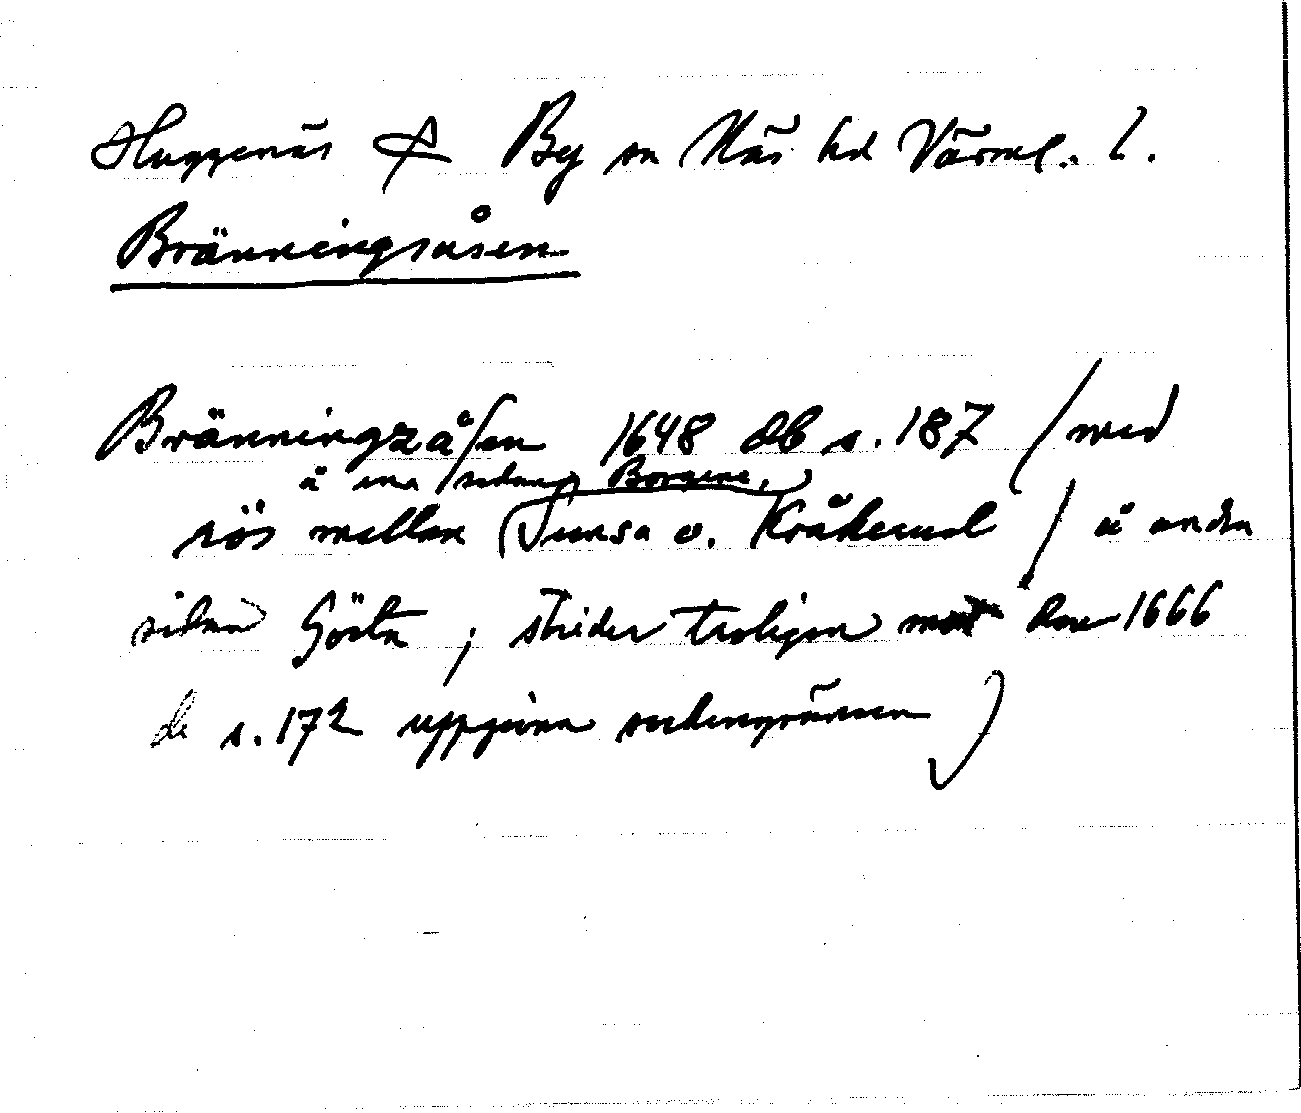 Huggenäs By sn Näs hd Värml. l.
Bränningsåsen
Bränningzåsen 1648 db s. 187 (med
å ena sidan Borgene,
rös mellan Tunsa o. Kråkerud / å andra
sidan Gösta ; strider troligen mot den 1666
db s. 172 uppgivna sockengränsen)